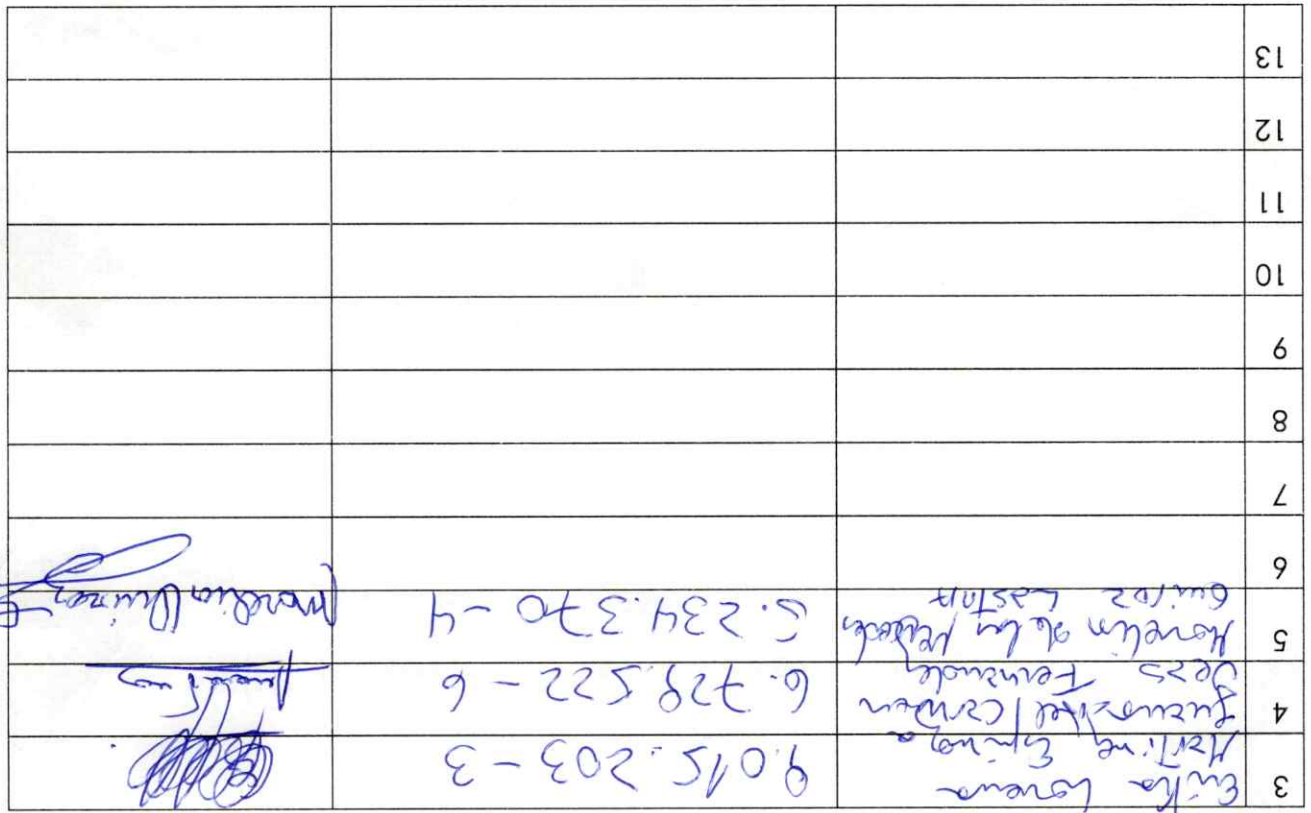 3 Erika Lorena
Martinez Espinoza 9.015.203-3
4 Juana del Carmen
Dezs Fernandez 6.729.522-6
5 Morelia de las Mercedes
Quiroz Lastap 5.234.370-4 Morelia Quiroz
6
7
8
9
10
11
12
13